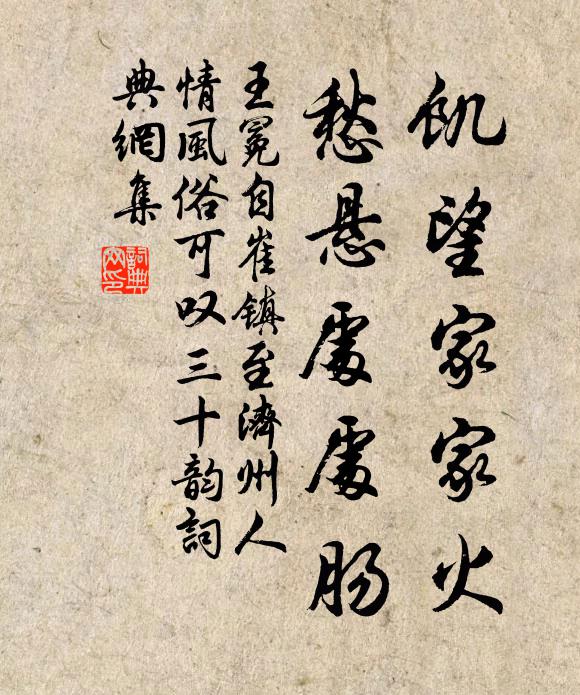 飢望家家火
愁悬處處肠
王冕自崔镇至濟州人
情風俗可叹三十韵詞
典網集
詞典
网印